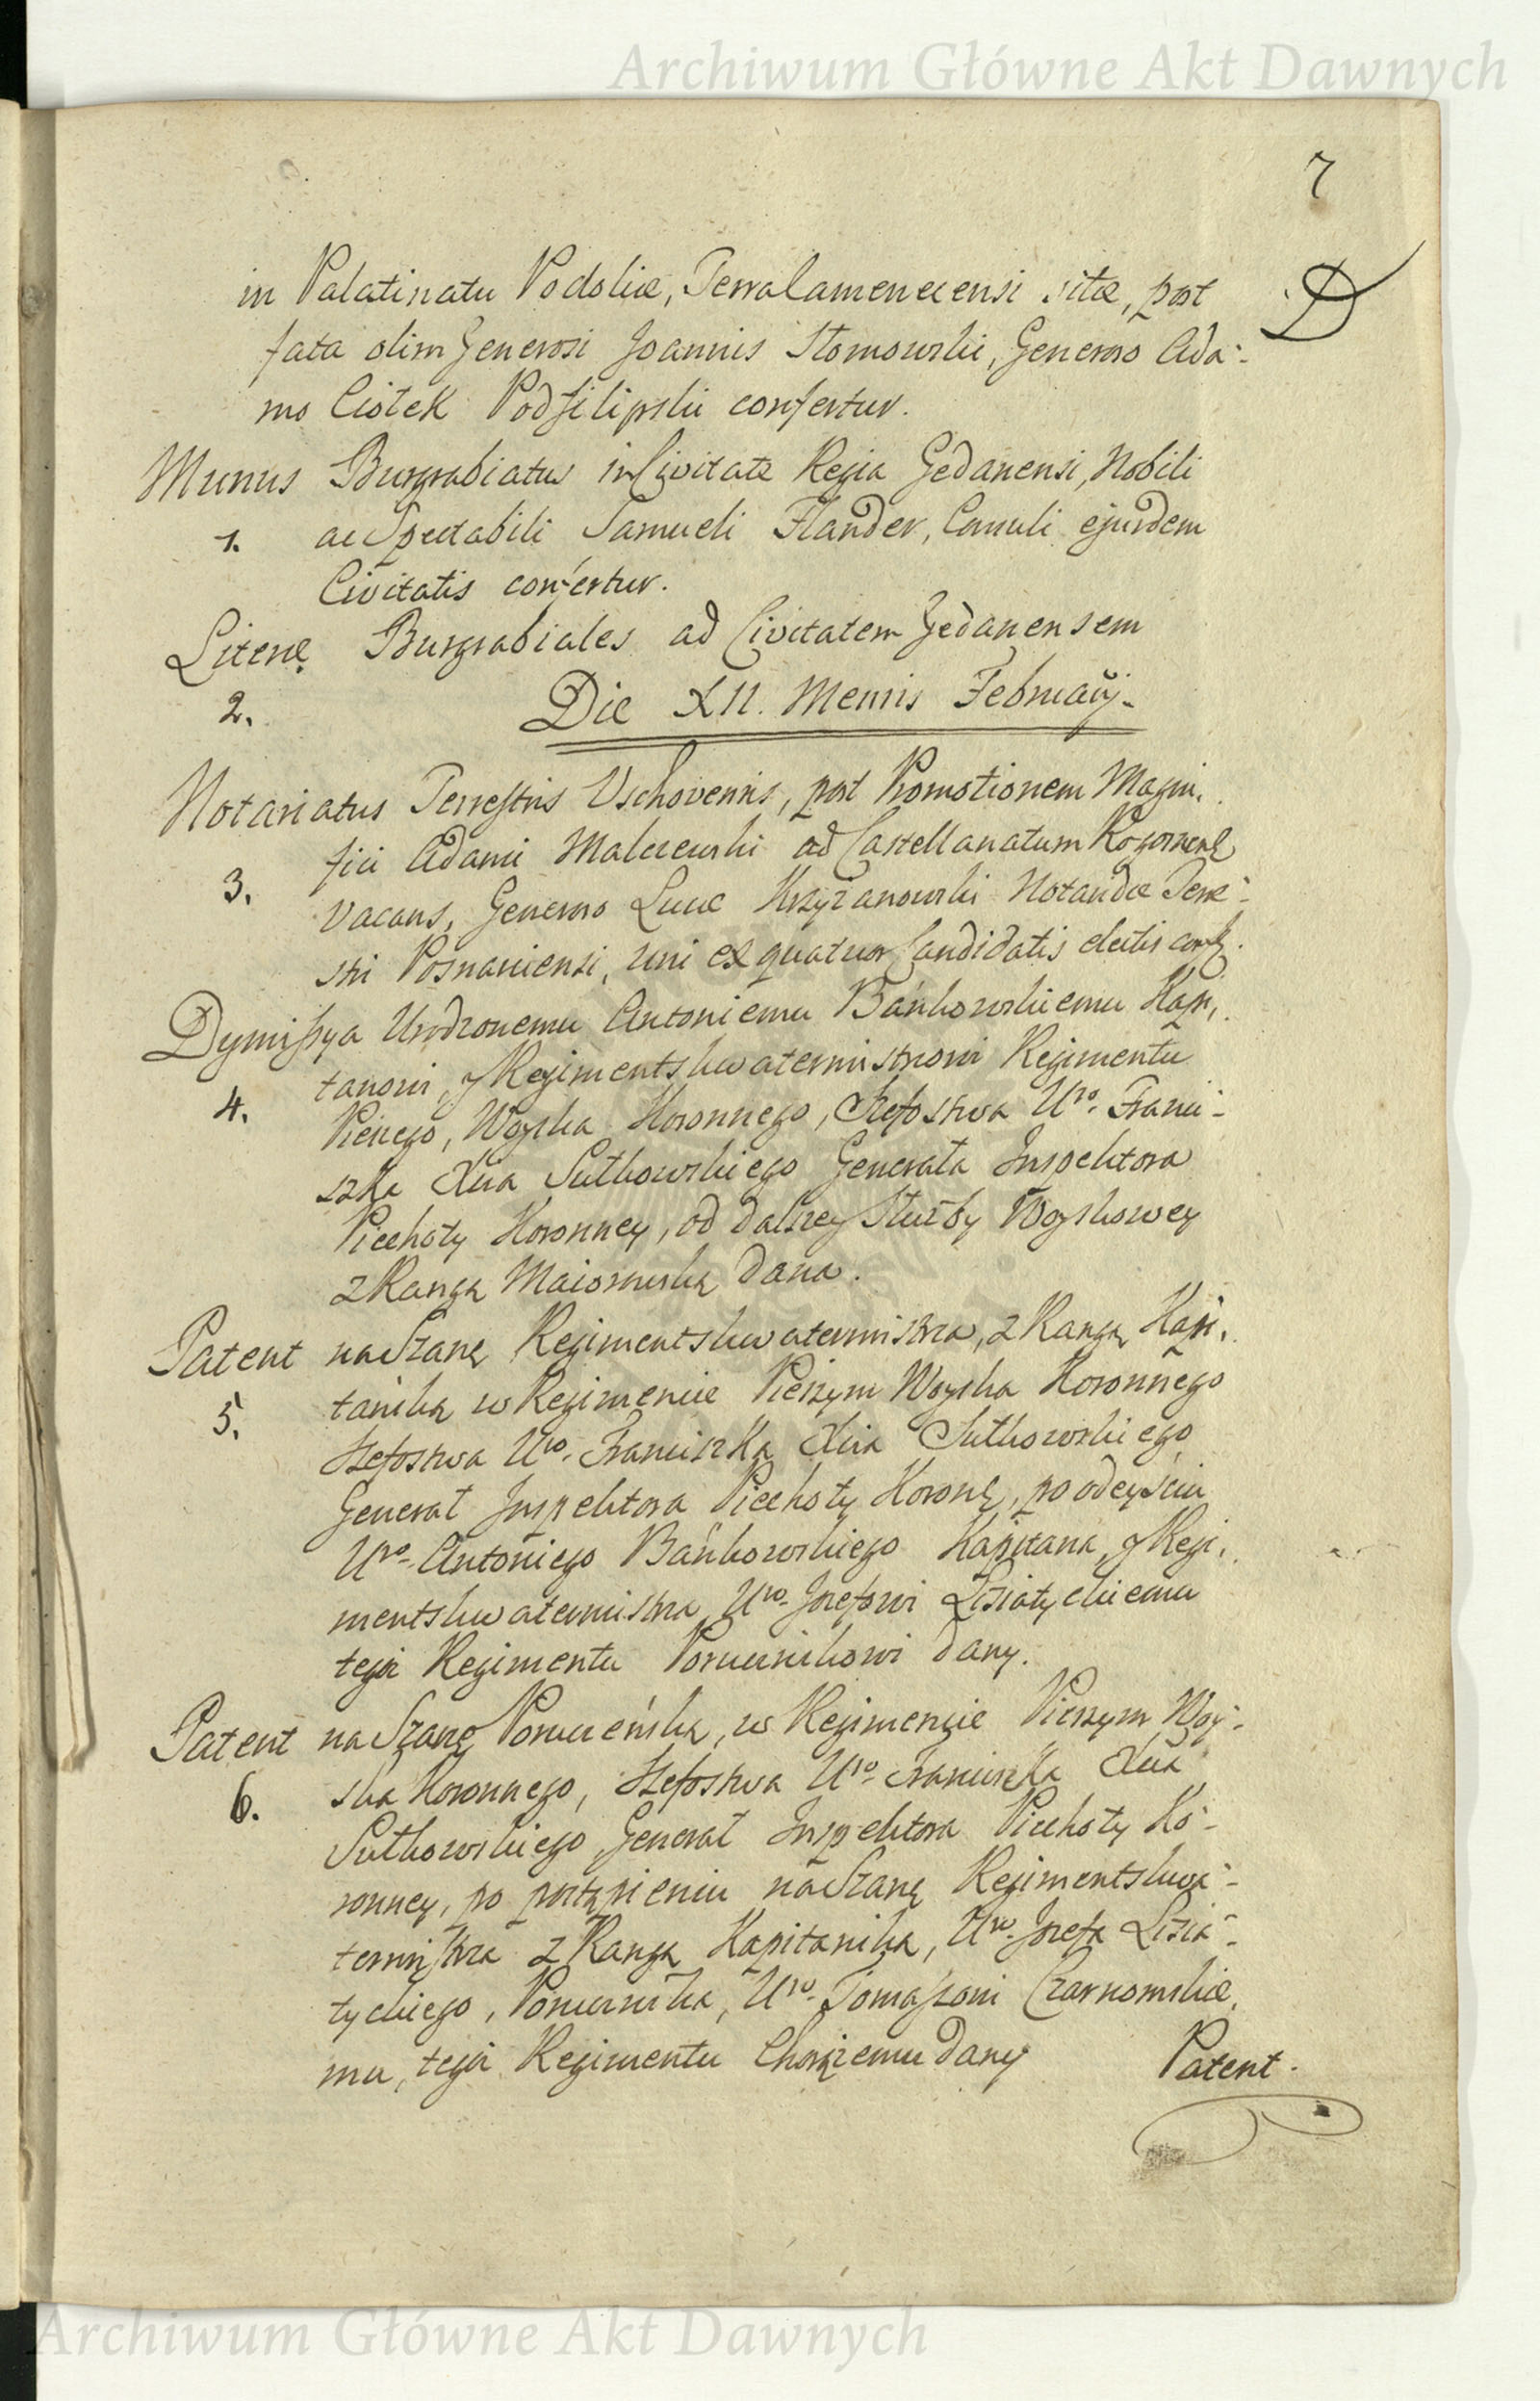 Archiwum Główne Akt Dawnych
7
D
in Palatinatu Podoliæ, Terra Camenecensi sitæ, post
fata olim Generosi Joannis Słomowski, Generoso Ada-
mo Ciołek Podfilipski confertur.
Munus Burgrabiatus in Civitate Regia Gedanensi, Nobili
1. ac Spectabili Samueli Flander, Consuli ejusdem
Civitatis confertur.
Literę Burgrabiales ad Civitatem Gedanensem
2.
Die XII. Mensis Februarij.
Notariatus Terrestris Vschovensis, post Promotionem Magni,
fici Adami Malczewski ad Castellanatum Rogoznenę
3.
vacans, Generoso Lucæ Krzyżanowski Notando Terre-
stri Posnaniensi, uni ex quatuor Candidatis electis conf.
Dymissya Urodzonemu Antoniemu Bańkowskiemu Kapi,
tanowi, y Regimentskwatermistrzowi Regimentu
4.
Pieszego, Woyska Koronnego, Szefostwa Uro. Franci-
szka Xcia Sułkowskiego Generała Inspektora
Piechoty Koronney, od dalszey Służby Woyskowey
z Rangą Maiorowską dana.
Patent na Szarżę Regimentskwatermistrza, z Rangą Kapi,
5.
tańską w Regimencie Pieszym Woyska Koronnego
Szefostwa Uro. Franciszka Xcia Sułkowskiego
Generał Inspektora Piechoty Koronę, po odeyściu
Uro. Antoniego Bańkowskiego Kapitana, y Regi,
mentskwatermistrza Uro. Jozefowi Lisiatyckiemu
tegoż Regimentu Porucznikowi dany.
Patent na Szarżę Porucznską, w Regimencie Pieszym Woy-
6.
ska Koronnego, Szefostwa Uro. Franciszka Xcia
Sułkowskiego, Generał Inspektora Piechoty Ko-
ronney, po postąpieniu na Szarżę Regimentskwa-
termistrza z Rangą Kapitańską, Uro. Jozefa Lisia-
tyckiego, Porucznika, Uro. Tomaszowi Czarnomskie,
mu, tegoż Regimentu Chorążemu dany
Patent.
Archiwum Główne Akt Dawnych